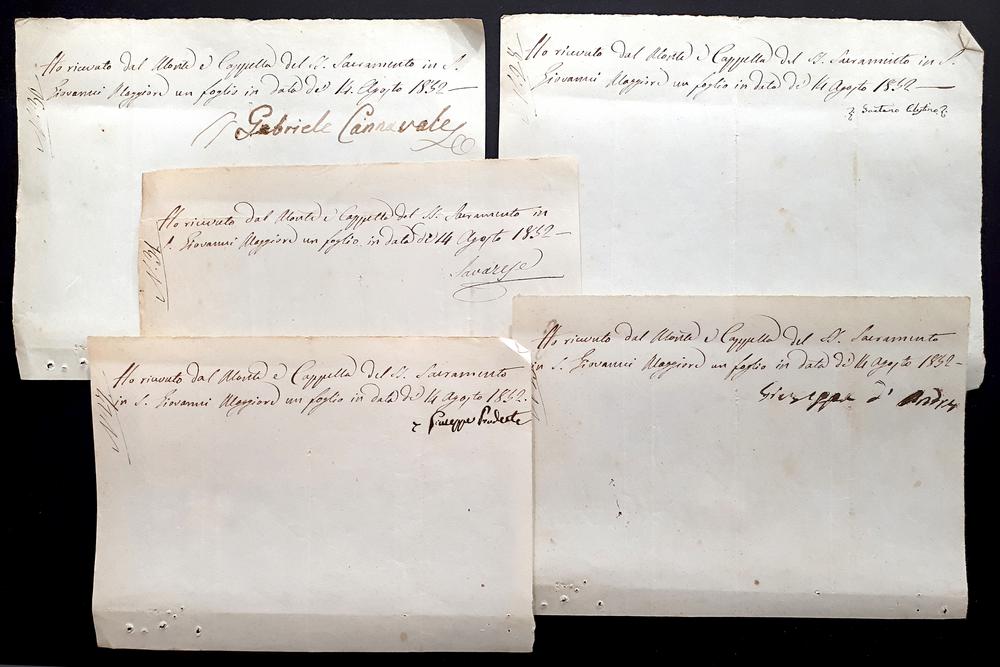 N.° 30
Ho ricevuto dal Monte e Cappella del SS. Sacramento in S.
Giovanni Maggiore un foglio in data de' 14 Agosto 1832 —
Gabriele Cannavale
Ho ricevuto dal Monte e Cappella del SS. Sacramento in S.
Giovanni Maggiore un foglio in data de' 14 Agosto 1832 —
Gaetano
N.° 31
Ho ricevuto dal Monte e Cappella del SS. Sacramento in
S. Giovanni Maggiore un foglio in data de' 14 Agosto 1832 —
Savarese
Ho ricevuto dal Monte e Cappella del SS. Sacramento
in S. Giovanni Maggiore un foglio in data de' 14 Agosto 1832 —
Giuseppe d'
Ho ricevuto dal Monte e Cappella del SS. Sacramento
in S. Giovanni Maggiore un foglio in data de' 14 Agosto 1832.
Giuseppe Prudente